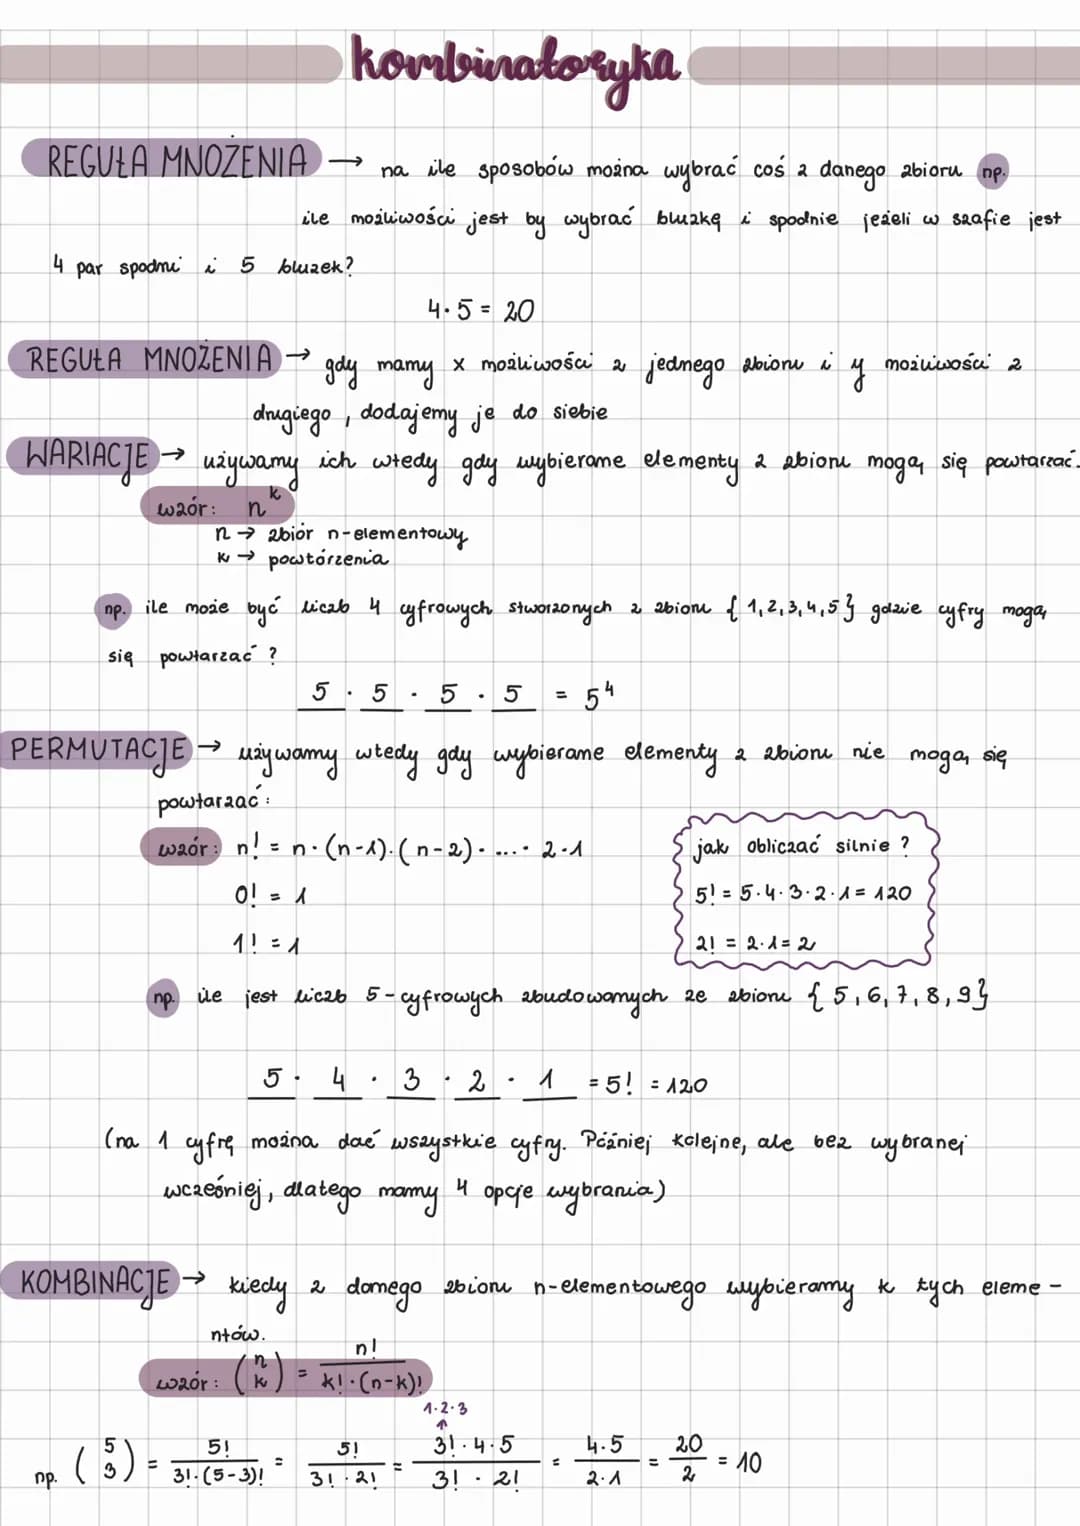 kombinatoryka
REGUŁA MNOŻENIA → na ile sposobów można wybrać coś z danego zbioru np.
ile możliwości jest by wybrać bluzkę i spodnie jeżeli w szafie jest
4 par spodni i 5 bluzek?
4·5 = 20
REGUŁA MNOŻENIA → gdy mamy x możliwości z jednego zbioru i y możliwości z
drugiego, dodajemy je do siebie
WARIACJE → używamy ich wtedy gdy wybierane elementy z zbioru mogą się powtarzać.
wzór: n^k
n → zbiór n-elementowy
k → powtórzenia
np. ile może być liczb 4 cyfrowych stworzonych z zbioru {1,2,3,4,5} gdzie cyfry mogą
się powtarzać?
5 · 5 · 5 · 5 = 5^4
PERMUTACJE → używamy wtedy gdy wybierane elementy z zbioru nie mogą się
powtarzać:
wzór: n! = n·(n-1)·(n-2)· ...· 2·1
0! = 1
1! = 1
jak obliczać silnie?
5! = 5·4·3·2·1 = 120
2! = 2·1 = 2
np. ile jest liczb 5-cyfrowych zbudowanych ze zbioru {5,6,7,8,9}
5 · 4 · 3 · 2 · 1 = 5! = 120
(na 1 cyfrę można dać wszystkie cyfry. Później kolejne, ale bez wybranej
wcześniej, dlatego mamy 4 opcje wybrania)
KOMBINACJE → kiedy z danego zbioru n-elementowego wybieramy k tych eleme-
ntów.
wzór: (n k) = n! / k!·(n-k)!
1·2·3
↑
np. (5 3) = 5! / 3!·(5-3)! = 5! / 3!·2! = 3!·4·5 / 3!·2! = 4·5 / 2·1 = 20 / 2 = 10